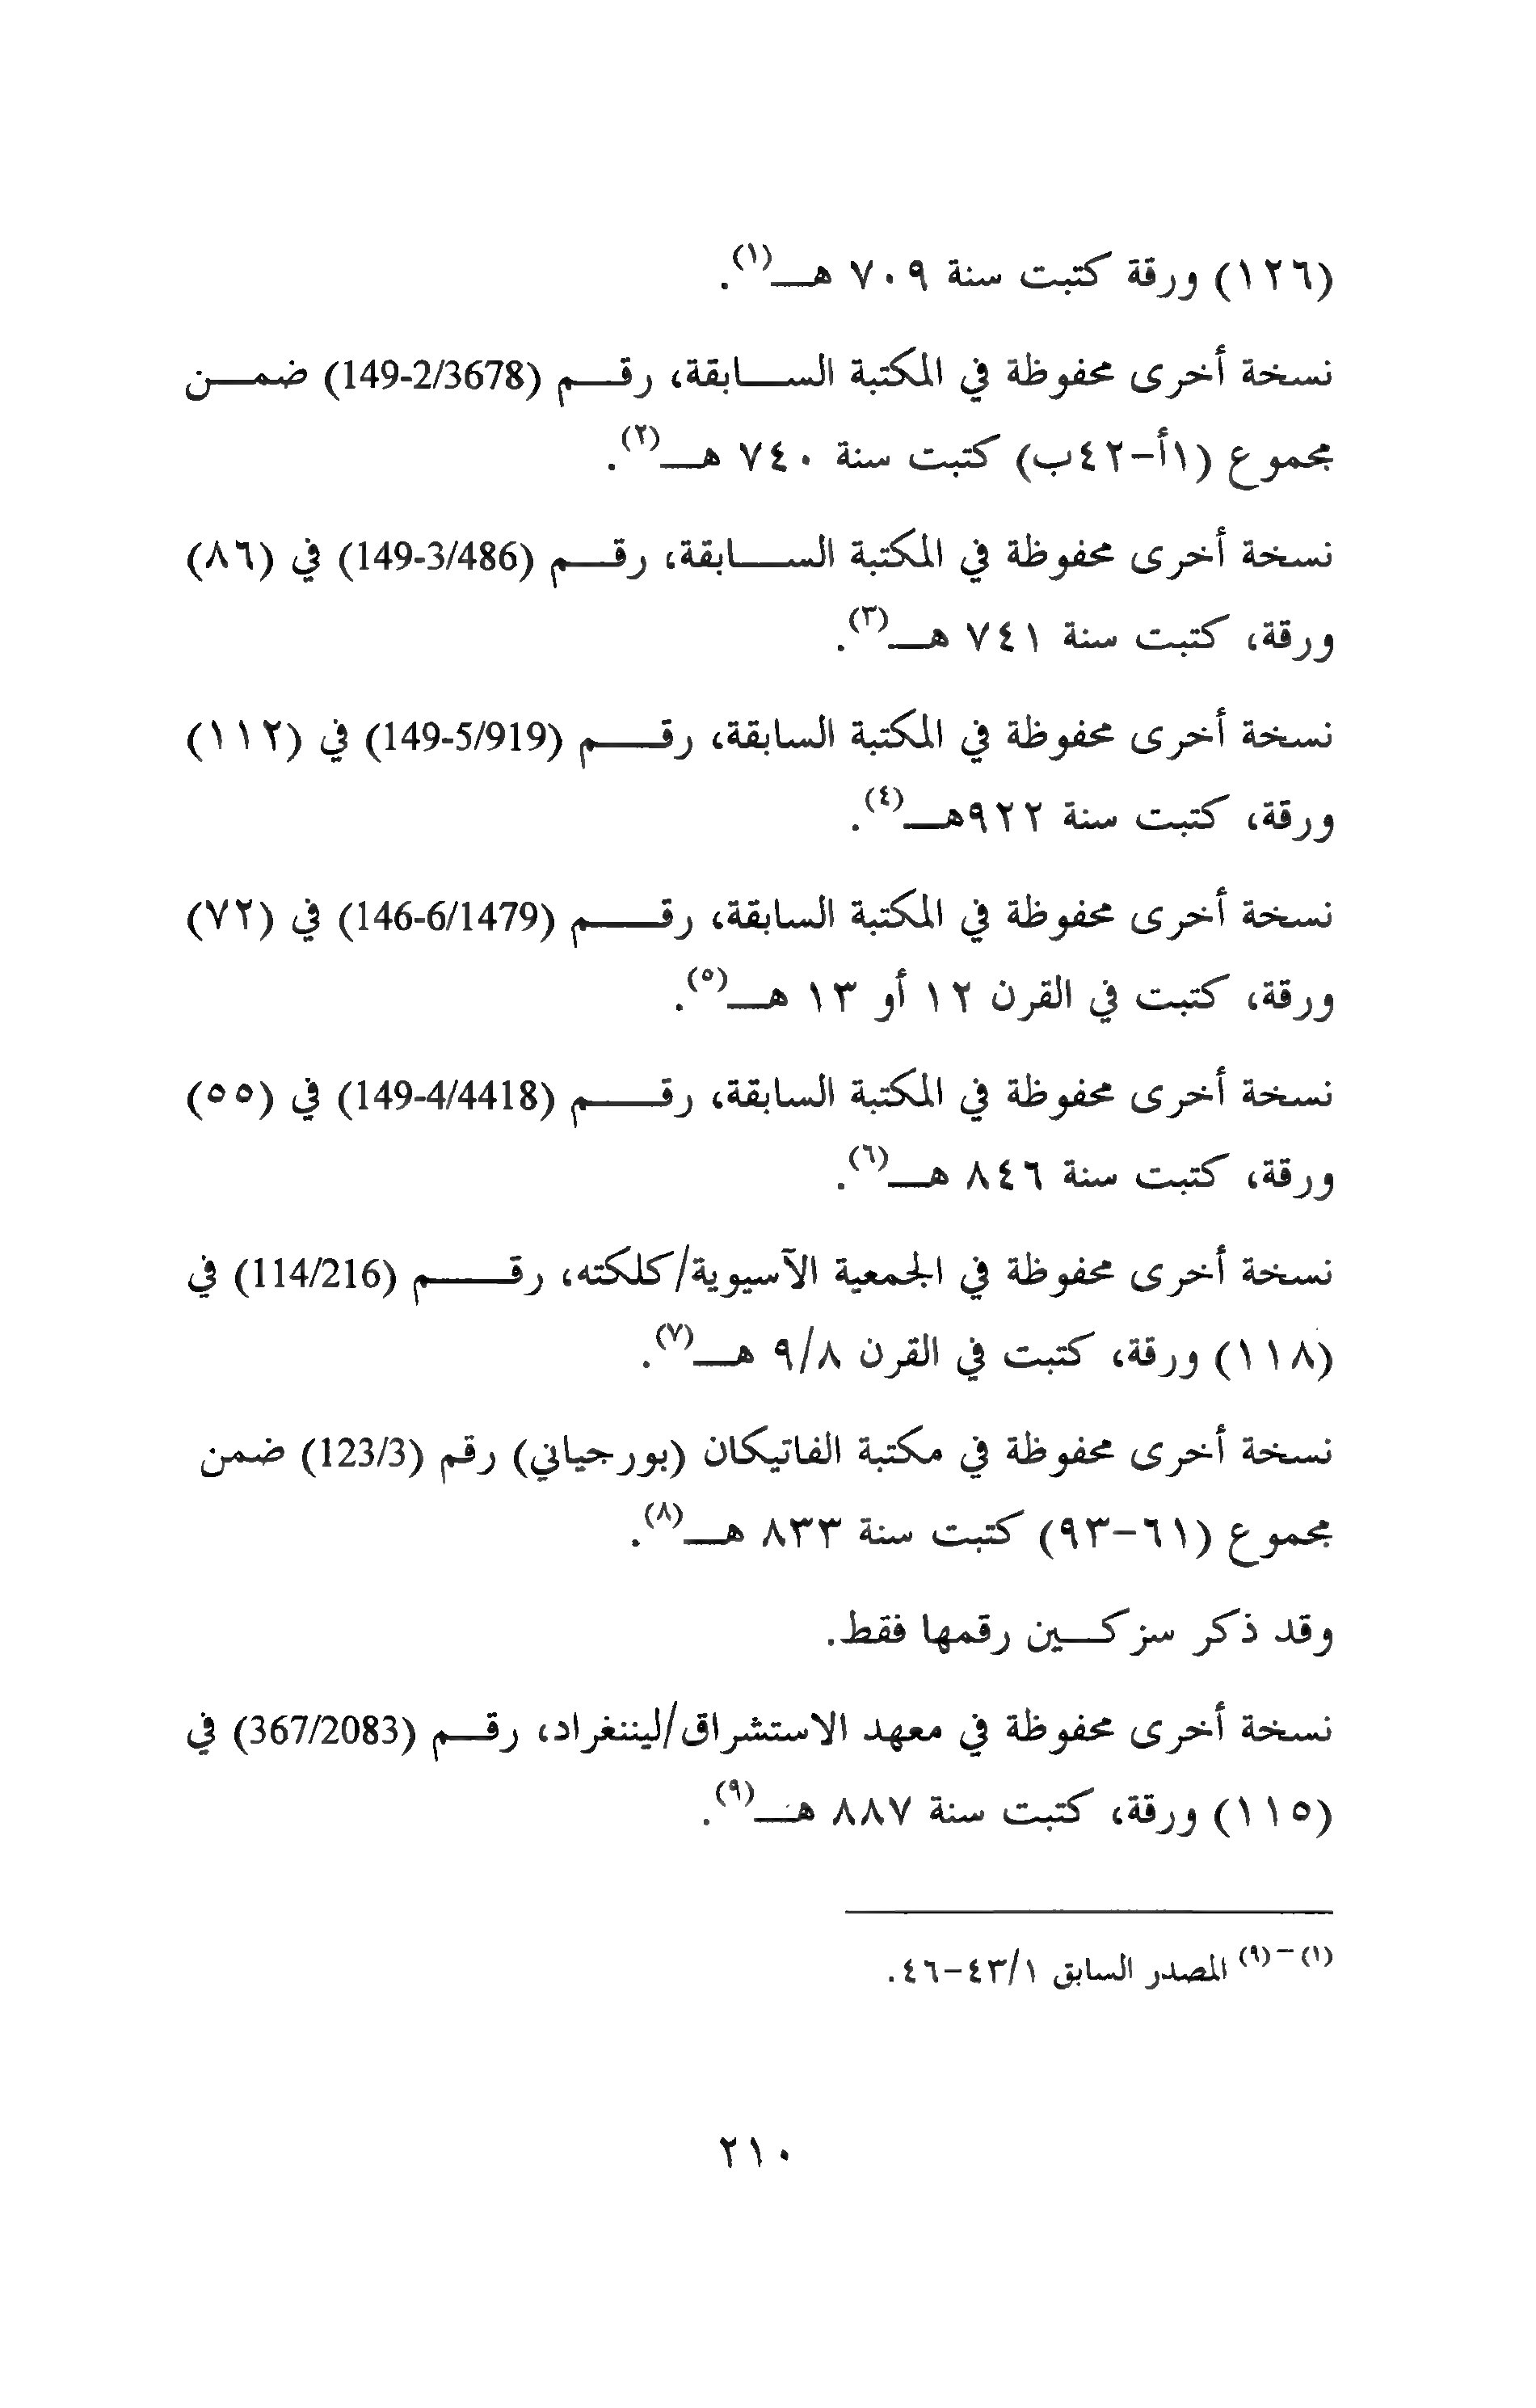 (١٢٦) ورقة كتبت سنة ٧٠٩ هـ(١).
نسخة أخرى محفوظة في المكتبة السابقة، رقم (149-2/3678) ضمن
مجموع (١أ-٤٢ب) كتبت سنة ٧٤٠ هـ(٢).
نسخة أخرى محفوظة في المكتبة السابقة، رقم (149-3/486) في (٨٦)
ورقة، كتبت سنة ٧٤١ هـ(٣).
نسخة أخرى محفوظة في المكتبة السابقة، رقم (149-5/919) في (١١٢)
ورقة، كتبت سنة ٩٢٢هـ(٤).
نسخة أخرى محفوظة في المكتبة السابقة، رقم (146-6/1479) في (٧٢)
ورقة، كتبت في القرن ١٢ أو ١٣ هـ(٥).
نسخة أخرى محفوظة في المكتبة السابقة، رقم (149-4/4418) في (٥٥)
ورقة، كتبت سنة ٨٤٦ هـ(٦).
نسخة أخرى محفوظة في الجمعية الآسيوية/كلكته، رقم (114/216) في
(١١٨) ورقة، كتبت في القرن ٩/٨ هـ(٧).
نسخة أخرى محفوظة في مكتبة الفاتيكان (بورجياني) رقم (123/3) ضمن
مجموع (٦١-٩٣) كتبت سنة ٨٣٣ هـ(٨).
وقد ذكر سزكين رقمها فقط.
نسخة أخرى محفوظة في معهد الاستشراق/ليننغراد، رقم (367/2083) في
(١١٥) ورقة، كتبت سنة ٨٨٧ هـ(٩).
(١)-(٩) المصدر السابق ٤٣/١-٤٦.
٢١٠